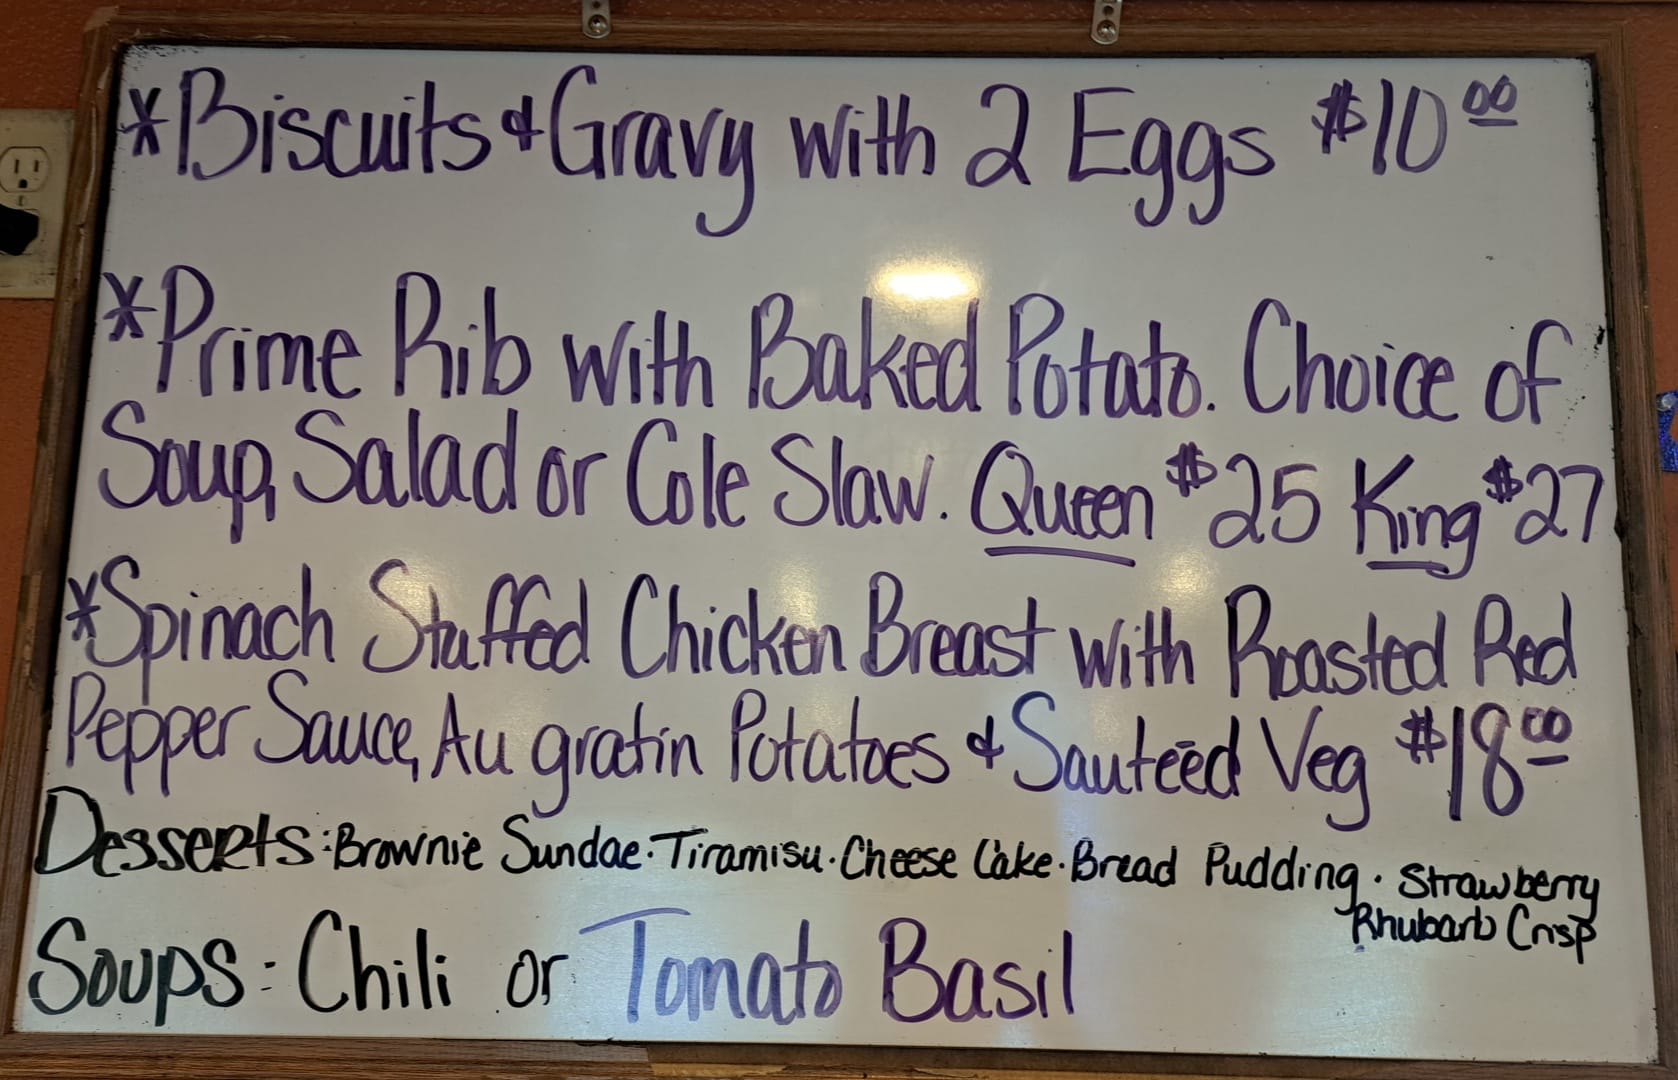 *Biscuits & Gravy with 2 Eggs $10 00
*Prime Rib with Baked Potato. Choice of
Soup, Salad or Cole Slaw. Queen $25 King $27
*Spinach Stuffed Chicken Breast with Roasted Red
Pepper Sauce, Au gratin Potatoes & Sauteēd Veg $18 00
Desserts: Brownie Sundae · Tiramisu · Cheese Cake · Bread Pudding · Strawberry
Rhubarb Crisp
Soups: Chili or Tomato Basil